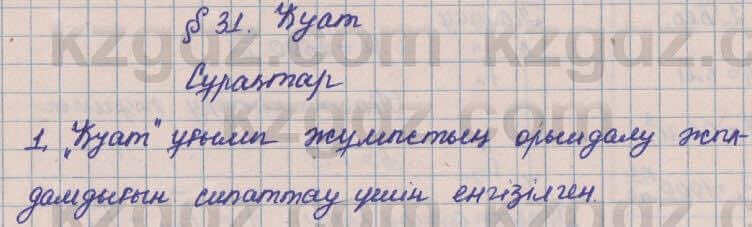 § 31. Қуат
Сұрақтар
1. „Қуат" ұғымы жұмыстың орындалу жыл-
дамдығын сипаттау үшін енгізілген.